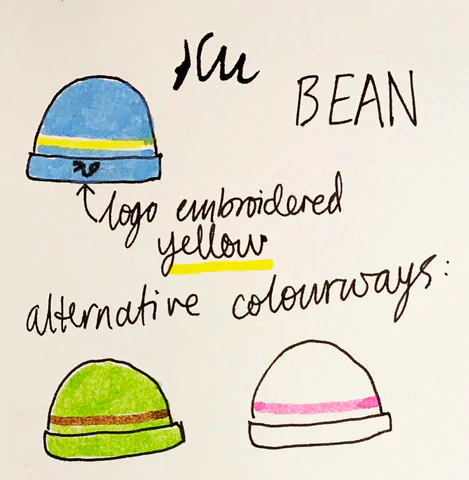 BEAN
logo embroidered
yellow
alternative colourways: